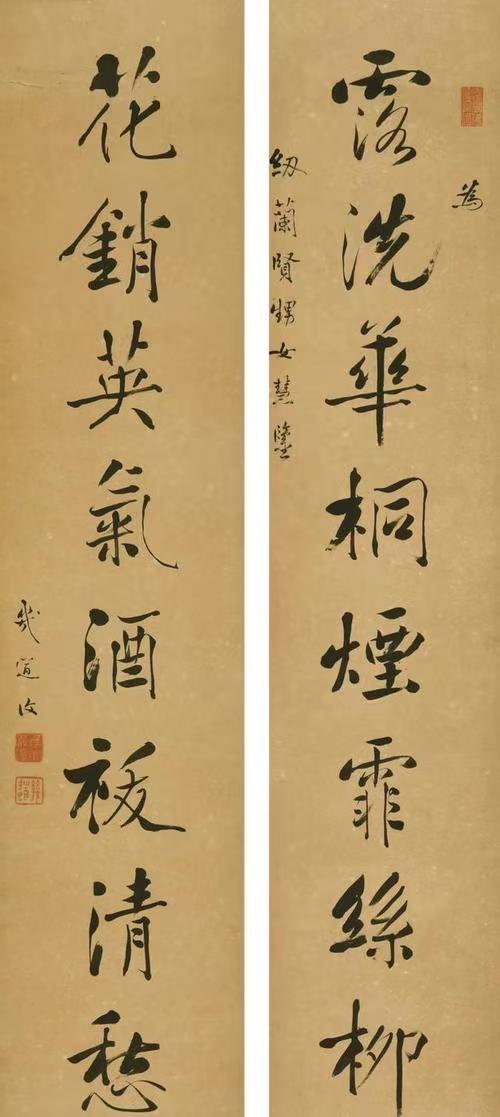 為
露洗華桐煙霏絲柳
紉蘭賢甥女慧鑒
花銷英氣酒祓清愁
幾道復